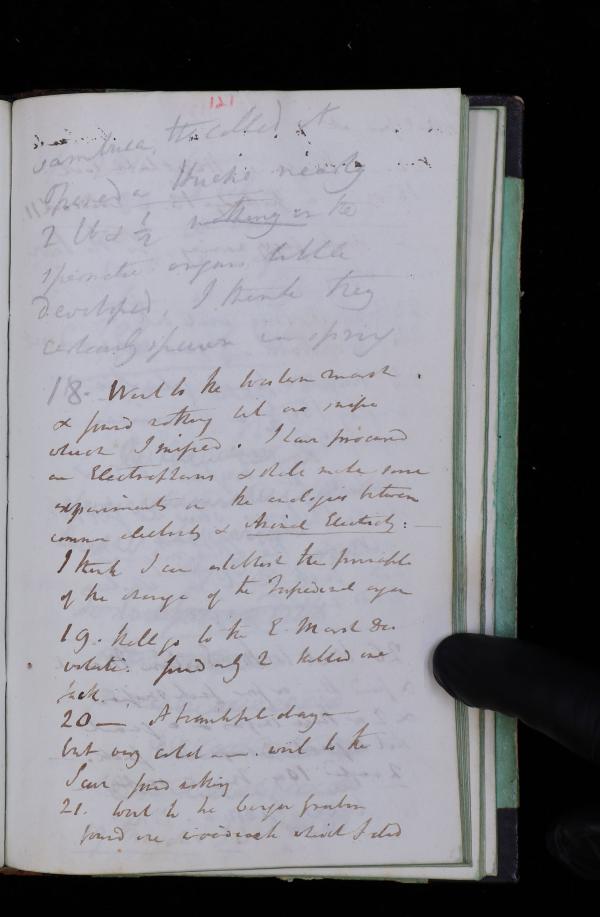 121
sambuca, the called it
Opened a Hucho nearly
2 lb & 1/2 nothing in the
spermatic organs little
developed, I think they
certainly spawn in spring
18. Went to the western marsh
& found nothing but one snipe
which I missed. I have procured
an Electrophorus & shall make some
experiments on the analogies between
common electricity & Animal Electricity:—
I think I can establish the principle
of the charge of the Torpedinal organ
19. Shall go to the E. Marsh
found only 2 killed one
Jack.
20 — A beautiful day
but very cold. went to the
found nothing
21. went to the
found one woodcock which I